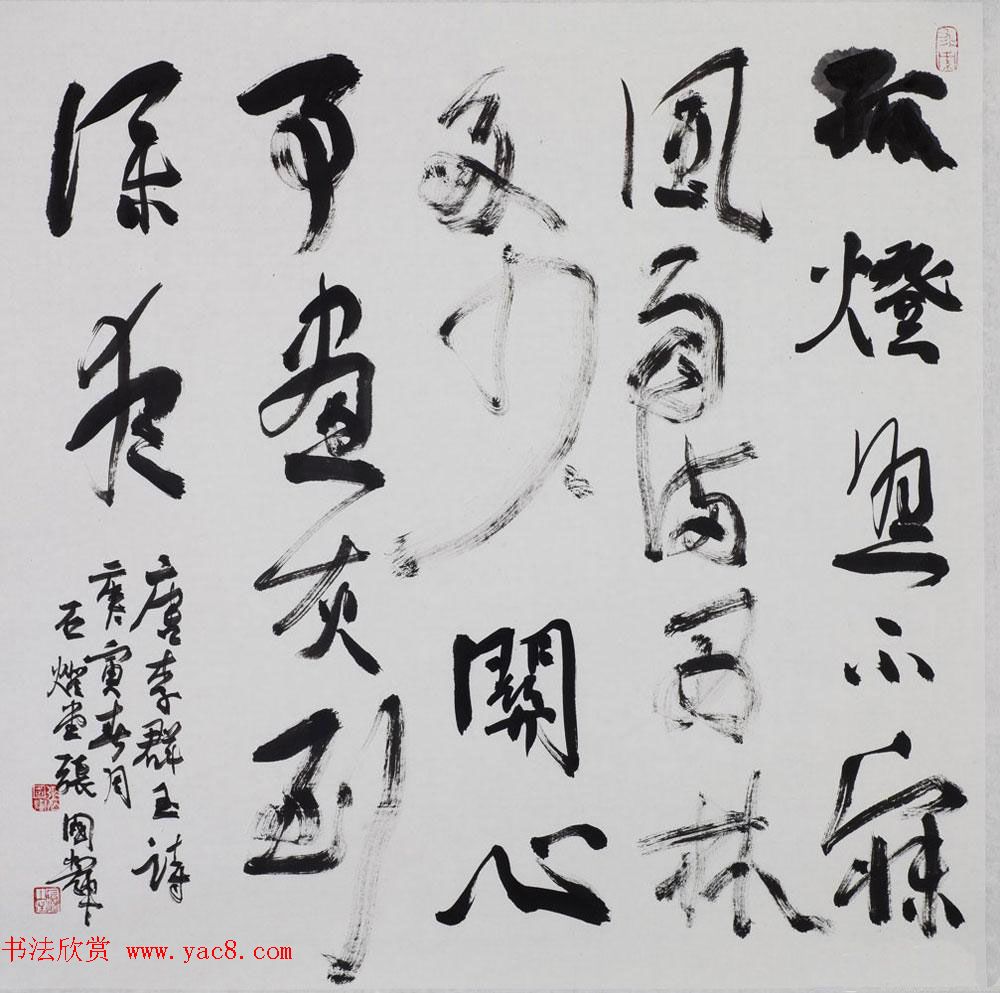 孤燈照不寐
風雨滿西林
多少關心
事畫灰到
深夜
唐李群玉詩
庚寅春月
石堂張國輝
书法欣赏 www.yac8.com